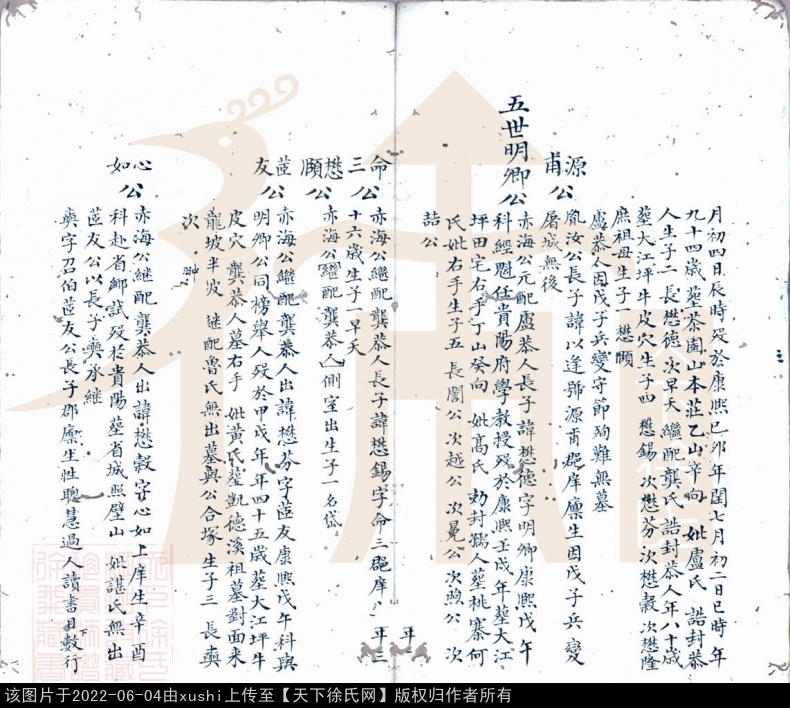 月初四日辰時歿於康熙己夘年閏七月初二日巳時年
九十四歲塟茶園山本莊乙山辛向 妣盧氏 誥封恭
人生子二 長懋德 次早夭 繼配龔氏 誥封恭人年八十歲
塟大江坪牛皮穴生子四 懋錫 次懋芬 次懋榖 次懋隆
庶祖母生子一懋頤
盧恭人因戊子兵變守節殉難無墓
源甫公 胤汝公長子諱以逢號源甫邑庠廩生因戊子兵變
屠城無後
五世明卿公 赤海公元配盧恭人長子諱懋德字明卿康熙戊午
科經魁任貴陽府學教授歿於康熙壬戌年塟大江
坪田宅右手丁山癸向 妣高氏 勅封孺人塟桃寨何
氏妣右手生子五 長闇公 次越公 次晃公 次煦公 次
喆公
命三公 赤海公繼配龔恭人長子諱懋錫字命三邑庠 年三
十六歲生子一早夭
懋頤公 赤海公繼配龔恭人側室出生子一名岱
茝友公 赤海公繼配龔恭人出諱懋芬字茝友康熙戊午科與
明卿公同榜舉人歿於甲戌年年四十五歲塟大江坪牛
皮穴 龔恭人墓右手 妣黃氏塟凱德溪祖墓對面来
龍坡半波 継配魯氏無出墓與公合塚生子三 長奭
次 翀
心如公 赤海公継配龔恭人出諱懋榖字心如上庠生辛酉
科赴省鄉試歿於貴陽塟省城照壁山 妣諶氏無出
茝友公以長子奭承继
奭字召伯茝友公長子郡廩生性聰慧過人讀書目數行
下
该图片于2022-06-04由xushi上传至【天下徐氏网】版权归作者所有